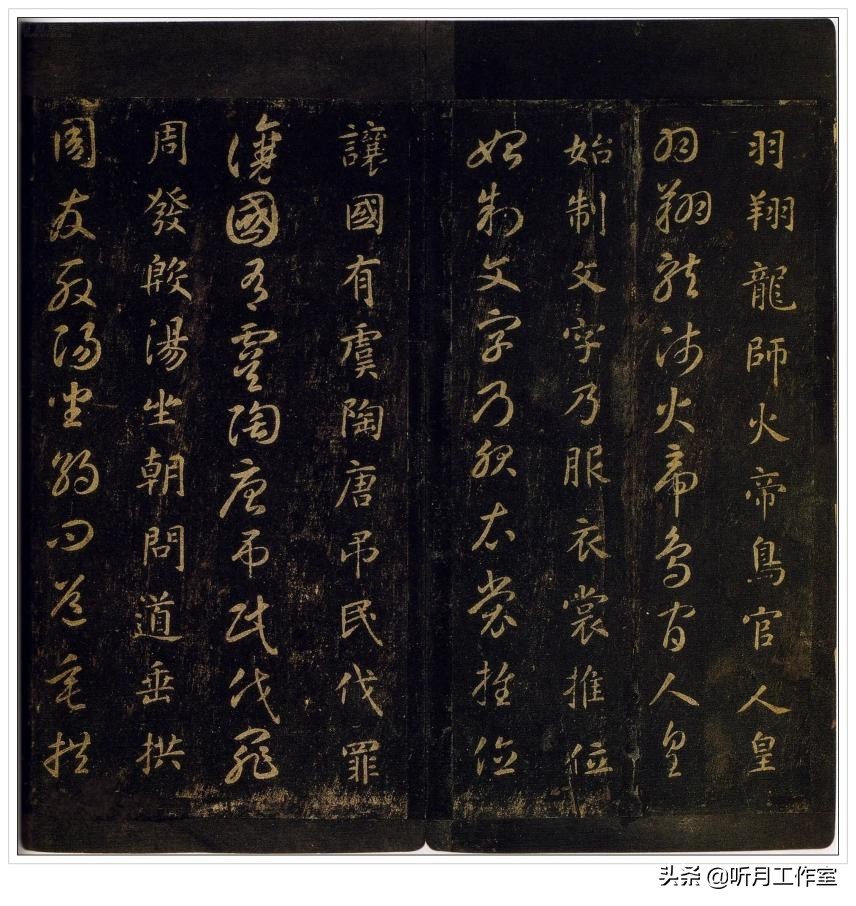 羽翔龍師火帝鳥官人皇
羽翔龍師火帝鳥官人皇
始制文字乃服衣裳推位
始制文字乃服衣裳推位
讓國有虞陶唐吊民伐罪
讓國有虞陶唐吊民伐罪
周發殷湯坐朝問道垂拱
周發殷湯坐朝問道垂拱
头条 @听月工作室